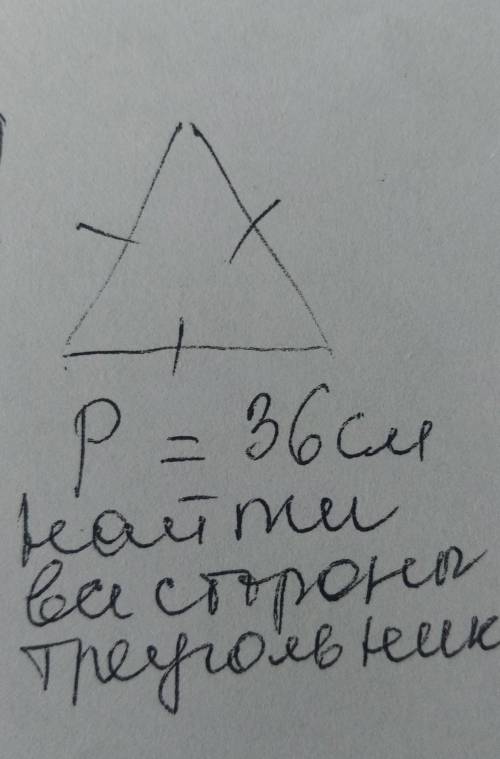 P = 36 см
найти
все стороны
треугольник